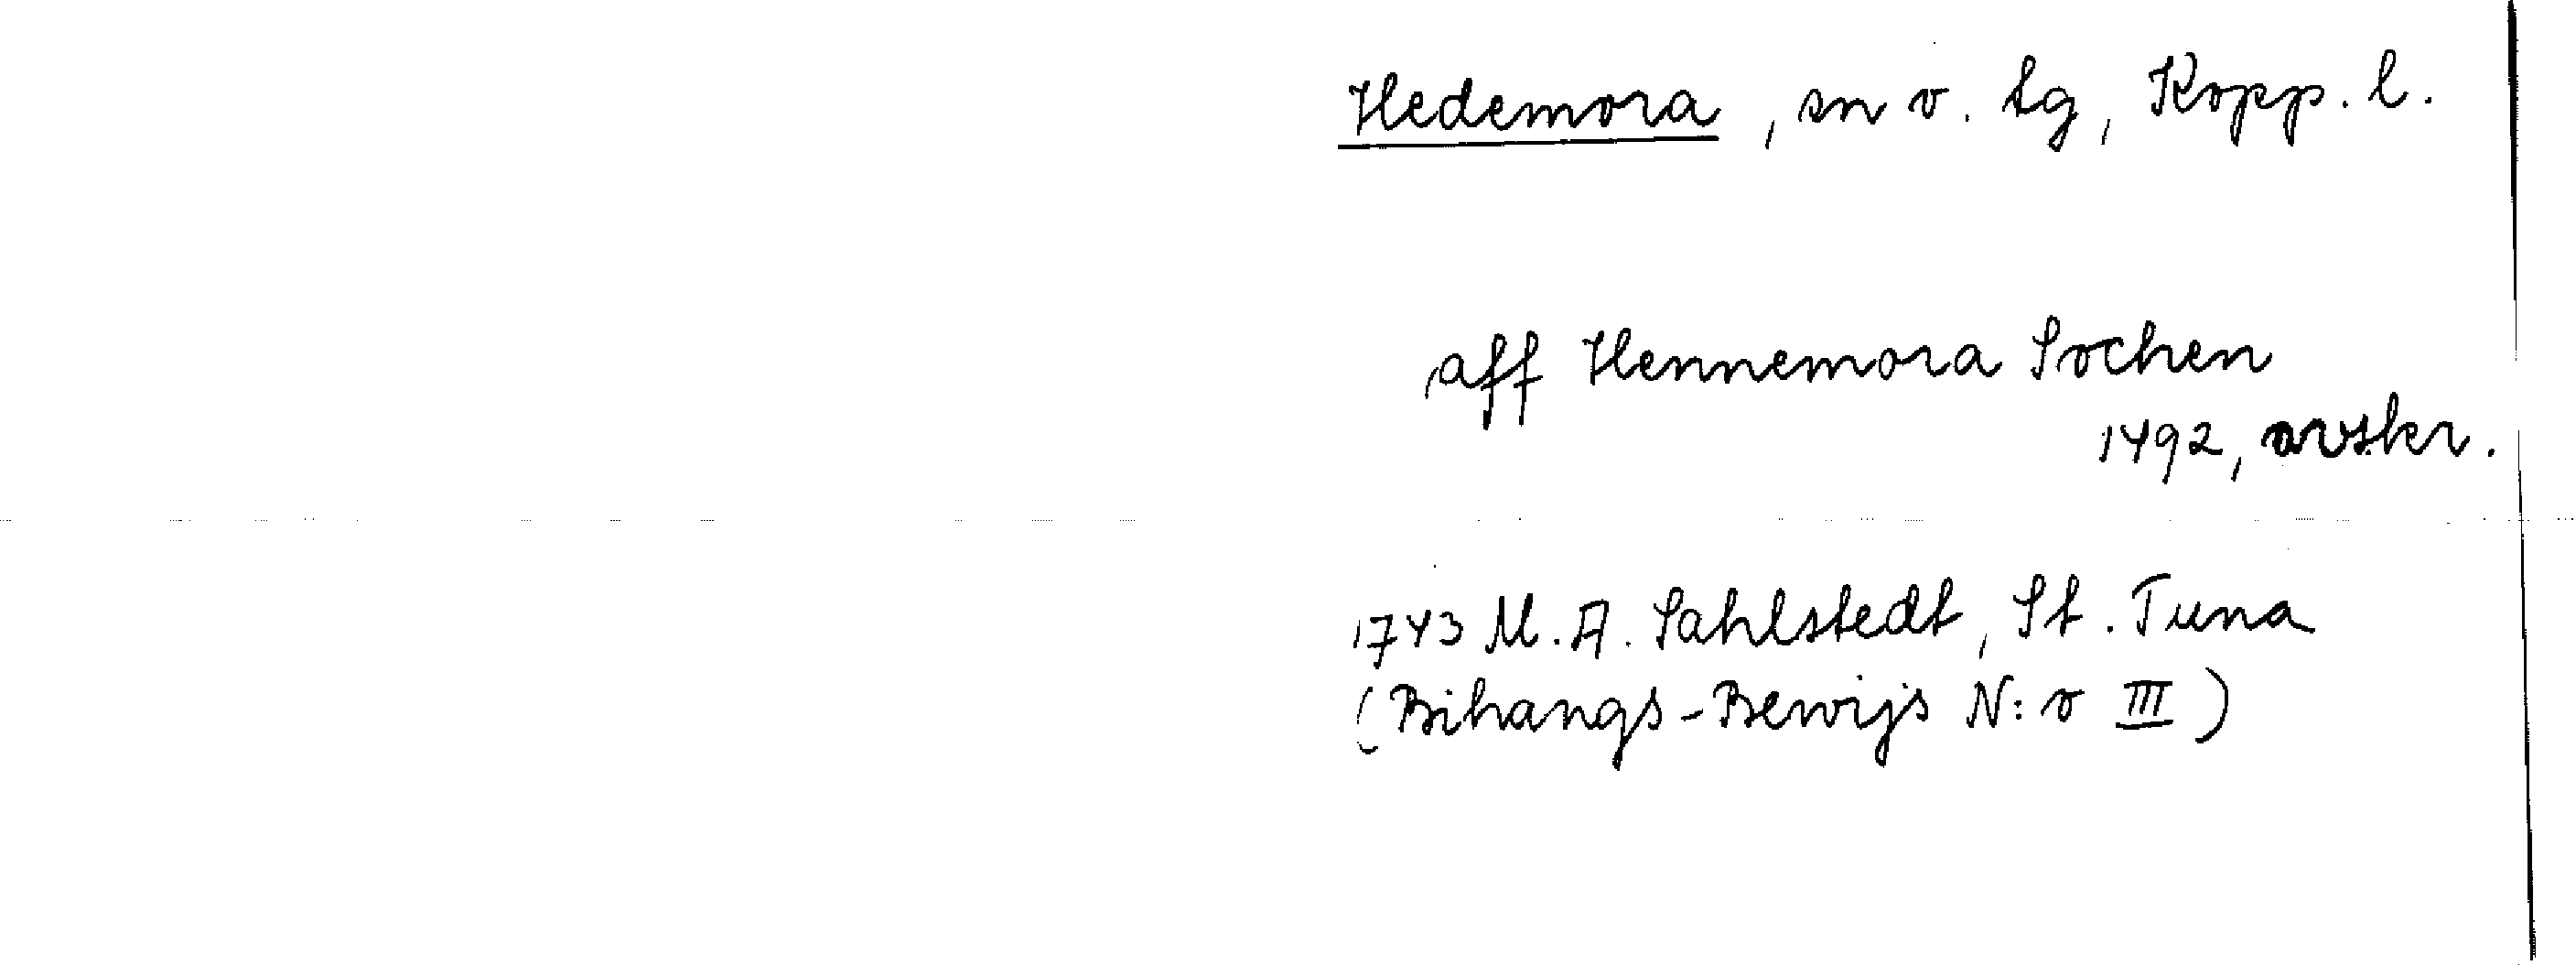 Hedemora, sn o. tg, Kopp. l.
aff Hennemora Sochen
1492, avskr.
1743 M. A. Sahlstedt, St. Tuna
(Bihangs-Bewijs N:o III)